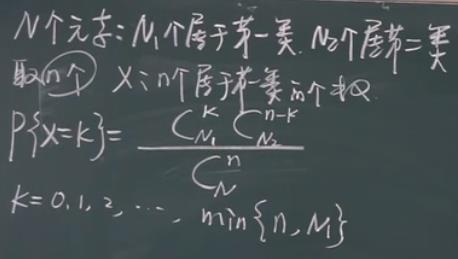 N个元素: N₁个属于第一类. N₂个属第二类
取n个 X: n个属于第一类的个数
P{X=k}= \frac{C_{N₁}^{k} C_{N₂}^{n-k}}{C_{N}^{n}}
k=0,1,2,⋯, min{n,N₁}